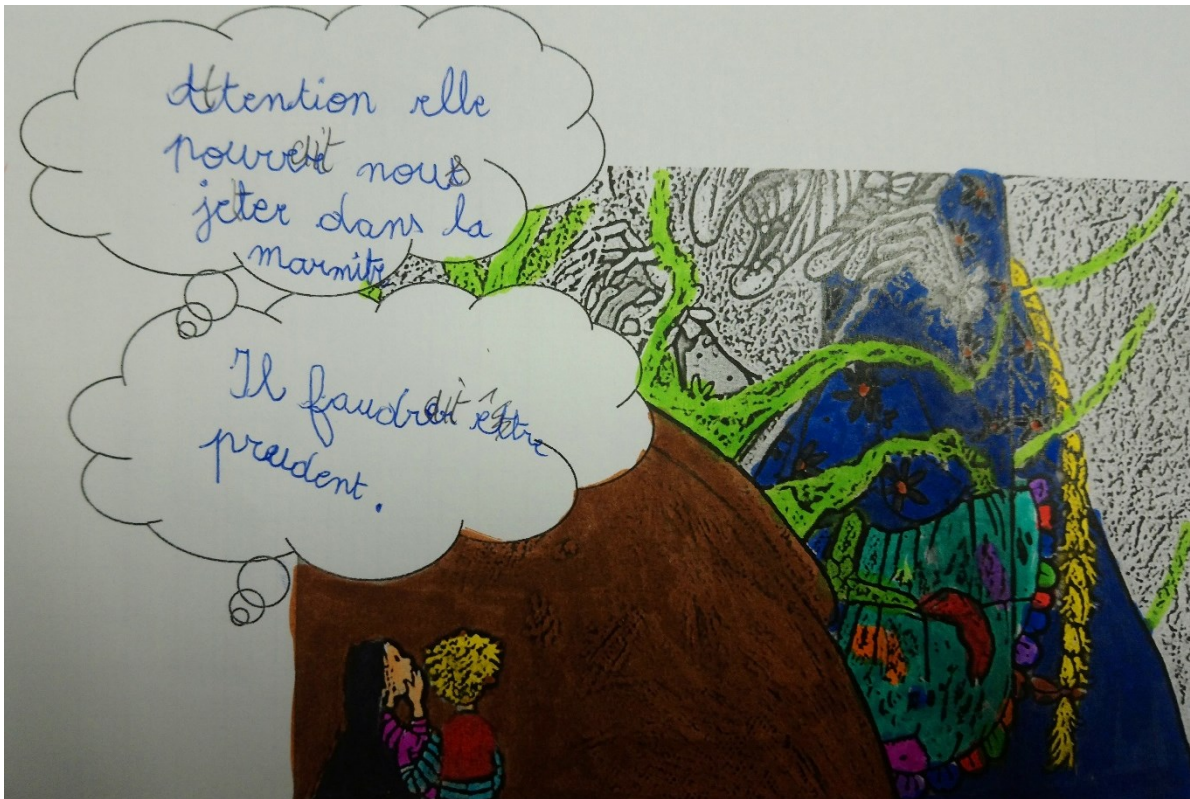 Attention elle
pourrait nous
jeter dans la
marmite.
Il faudrait être
prudent.